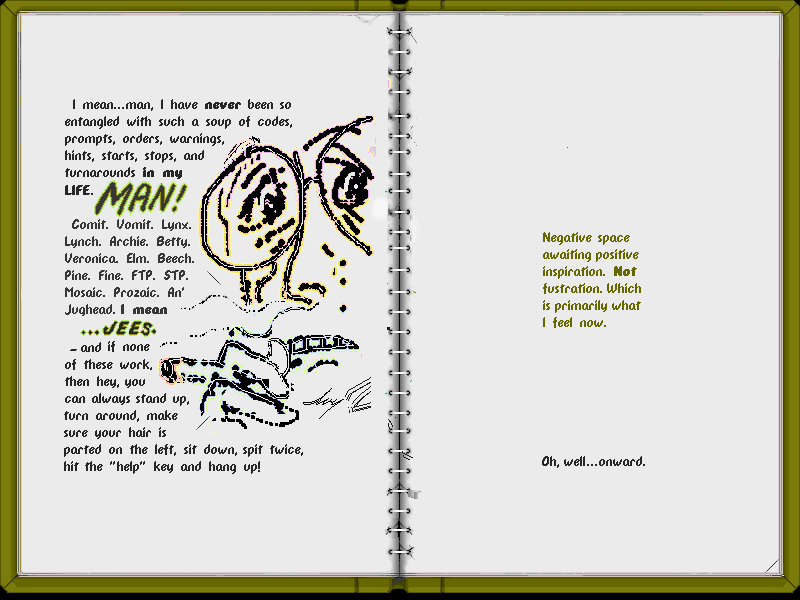 I mean...man, I have never been so
entangled with such a soup of codes,
prompts, orders, warnings,
hints, starts, stops, and
turnarounds in my
LIFE. MAN!
Comit. Vomit. Lynx.
Lynch. Archie. Betty.
Veronica. Elm. Beech.
Pine. Fine. FTP. STP.
Mosaic. Prozaic. An'
Jughead. I mean
...JEES.
- and if none
of these work,
then hey, you
can always stand up,
turn around, make
sure your hair is
parted on the left, sit down, spit twice,
hit the "help" key and hang up!
Negative space
awaiting positive
inspiration. Not
fustration. Which
is primarily what
I feel now.
Oh, well...onward.